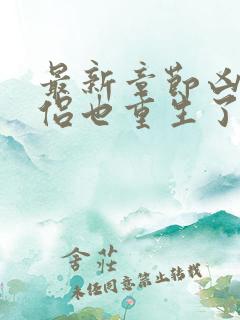 最新章节凶
侣也重生了
舍莊
未经同意禁止转载